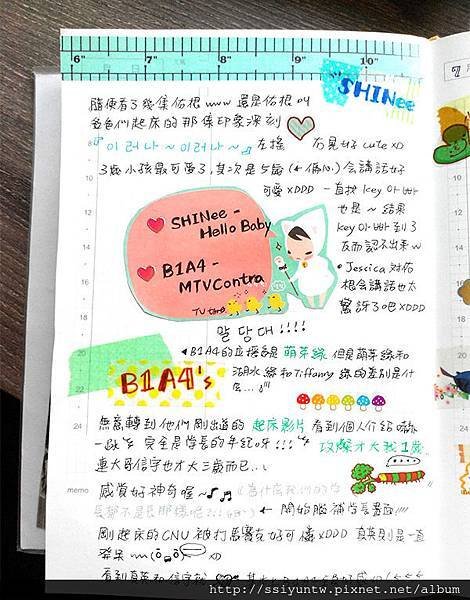 6" 7" 8" 9" 10"
7
"SHINee
隨便看了幾集佑根 www 還是佑根叫
各爸們起床的那集印象深刻
"이러나~이러나~" 左搖 右晃好 cute XD
3歲小孩最可愛了,其次是5歲 會講話好
可愛 XDDD 一直找 key 아빠
也是~ 結果
key 아빠到了
反而認不出來 w
SHINee -
Hello Baby
B1A4 -
MTVContra
• Jessica 對佑
根會講話也太
驚訝了吧 XDDD
말당대!!!!
B1A4的應援色是 萌芽綠 但是萌芽綠和
湖水綠和Tiffany 綠的差別是什
麼...!!!
B1A4's
無意轉到他們剛出道的 起床影片 看到個人介紹嚇
一跳 完全是學長的年紀呀!!! 攻燦才大我1歲
連大哥信宇也才大三歲而已..
memo
感覺好神奇喔~ 為什麼我們的學
長都不是長那樣呢 ← 開始腦補學長畫面!!!
剛起床的CNU 被打馬賽克好可憐 XDDD 真英則是一直
發呆 XD
看到真英和信宇
http://ssiyuntw.pixnet.net/album